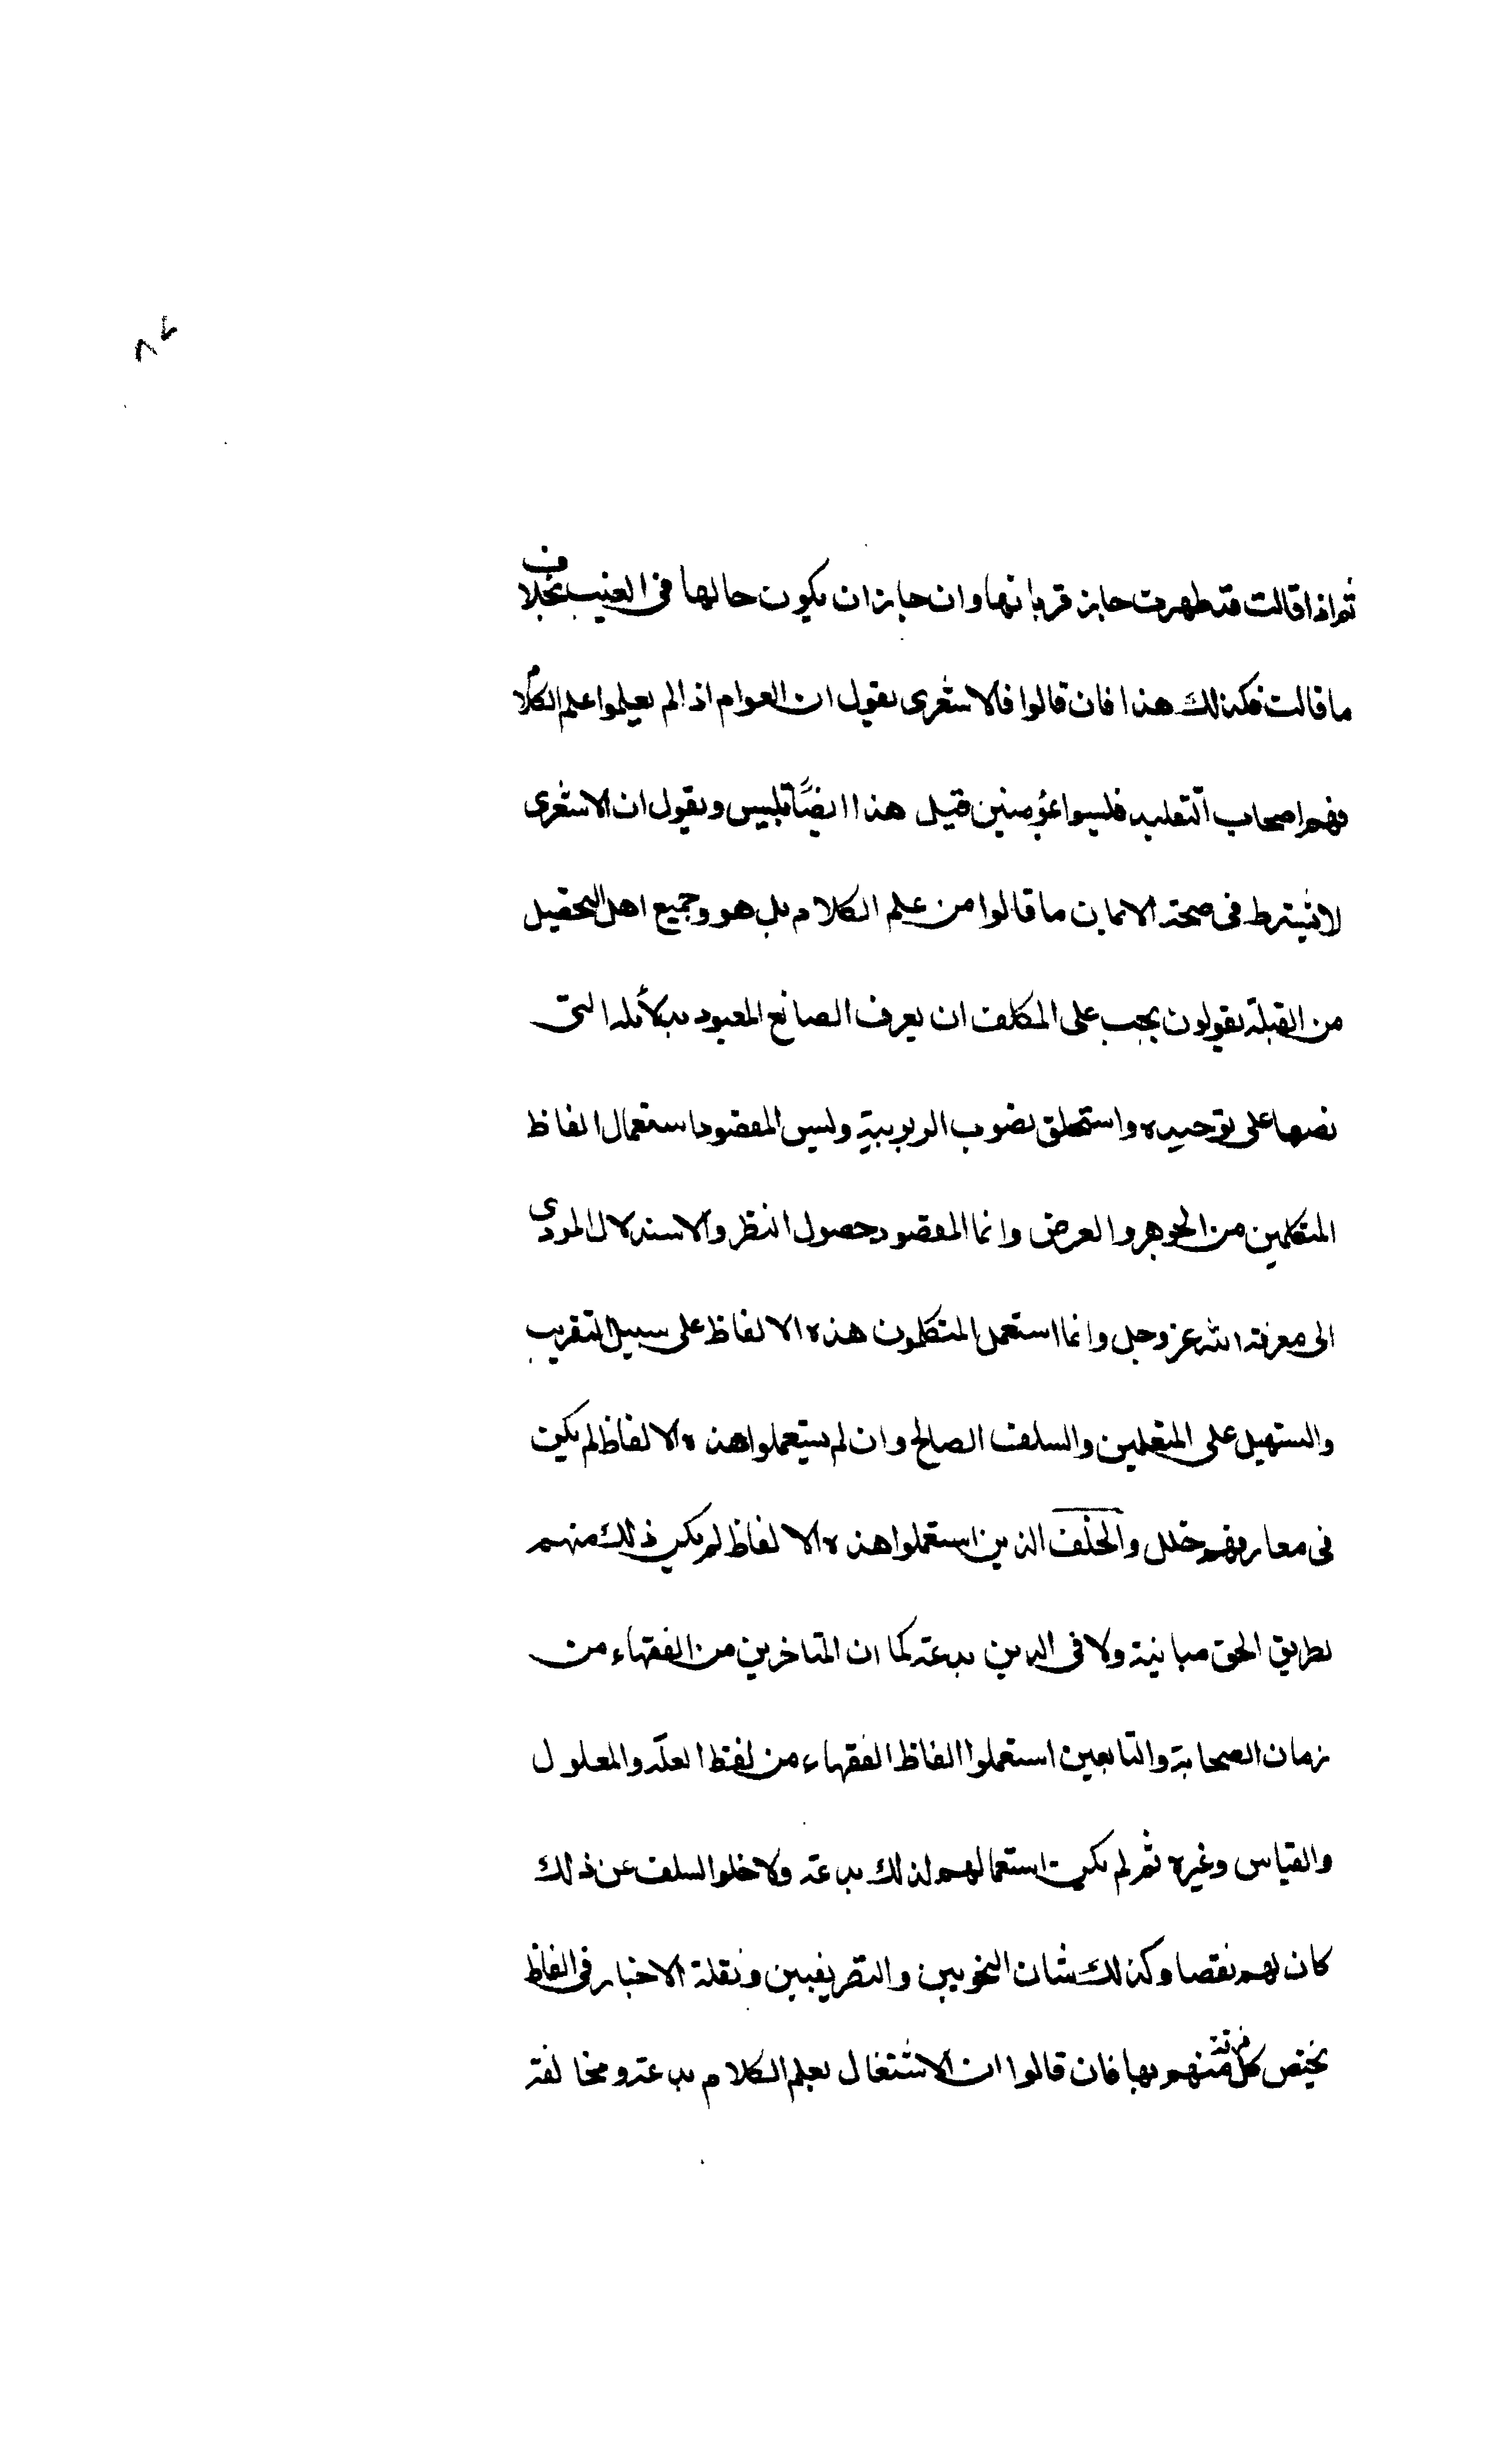 ٨٢
ثم اذا قالت قد طهرت جاز قربانها وان جاز ان يكون حالها في الغيب بخلاف
ما قالت فكذلك هذا فان قالوا فالاشعرى يقول ان العوام اذا لم يعلموا علم الكلام
فهم اصحاب التقليد فليسوا بمؤمنين قيل هذا ايضًا تلبيس ويقول ان الاشعرى
لا يشترط في صحة الايمان ما قالوا من علم الكلام بل هو وجميع اهل التحصيل
من القبلة يقولون يجب على المكلف ان يعرف الصانع المعبود بدلائله التى
نصبها على توحيده واستحقاق نعوت الربوبية وليس المقصود استعمال الفاظ
المتكلمين من الجوهر والعرض وانما المقصود حصول النظر والاستدلال المودى
الى معرفة الله عز وجل وانما استعمل المتكلمون هذه الالفاظ على سبيل التقريب
والتسهيل على المتعلمين والسلف الصالح وان لم يستعملوا هذه الالفاظ لم يكن
في معارفهم خلل والخلف الذين استعملوا هذه الالفاظ لم يكن ذلك منهم
لطريق الحق مباينة ولا في الدين بدعة كما ان المتاخرين من الفقهاء من
زمان الصحابة والتابعين استعملوا الفاظ الفقهاء من لفظ العلة والمعلول
والقياس وغيره ثم لم يكن استعمالهم لذلك بدعة ولا خلوا السلف عن ذلك
كان لهم نقصا وكذلك شان النحويين والتصريفيين ونقلة الاخبار في الفاظ
يختص كل فرقة منهم بها فان قالوا ان الاشتغال بعلم الكلام بدعة ومخالفة